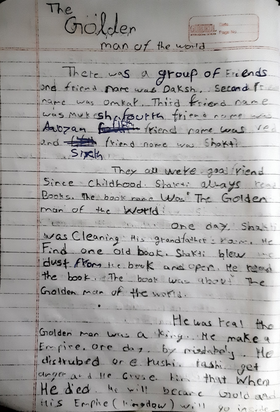 The
Golden
man of the world
There was a group of Friends
and friend name was Daksh, Second F
name was Omkar. Third friend name
was fourth friend name was
friend name was
and friend name was Shakti
Sixth
They all were friend
Since Childhood. Shakti always
Books. the book name Was "The Golden
man of the World!
One day, Shak
was Cleaning His grandfather room. He
Find one old book. Shakti blew
dust from the book and open. He
the book. The book was about The
Golden man of the world.
He was real the
Golden man was a King. He make a
Empire. one day, by He
a rushi. rushi get
anger and He him that When
He died. He will became
His Empire (kingdom) will go in